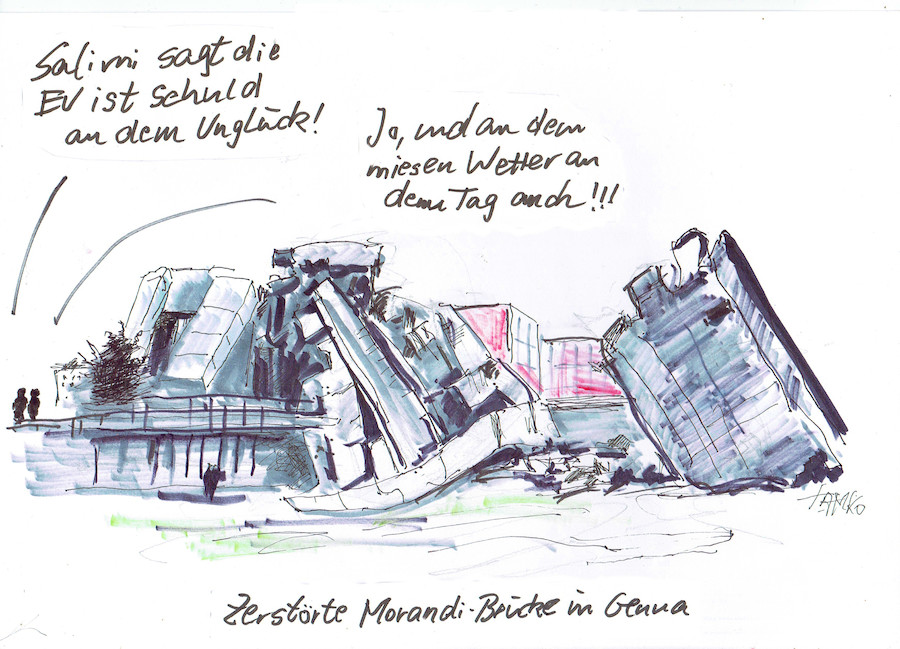 Salimi sagt die
EU ist Schuld
an dem Unglück!
Ja, und an dem
miesen Wetter an
dem Tag auch!!!
TAMKO
Zerstörte Morandi-Brücke in Genua